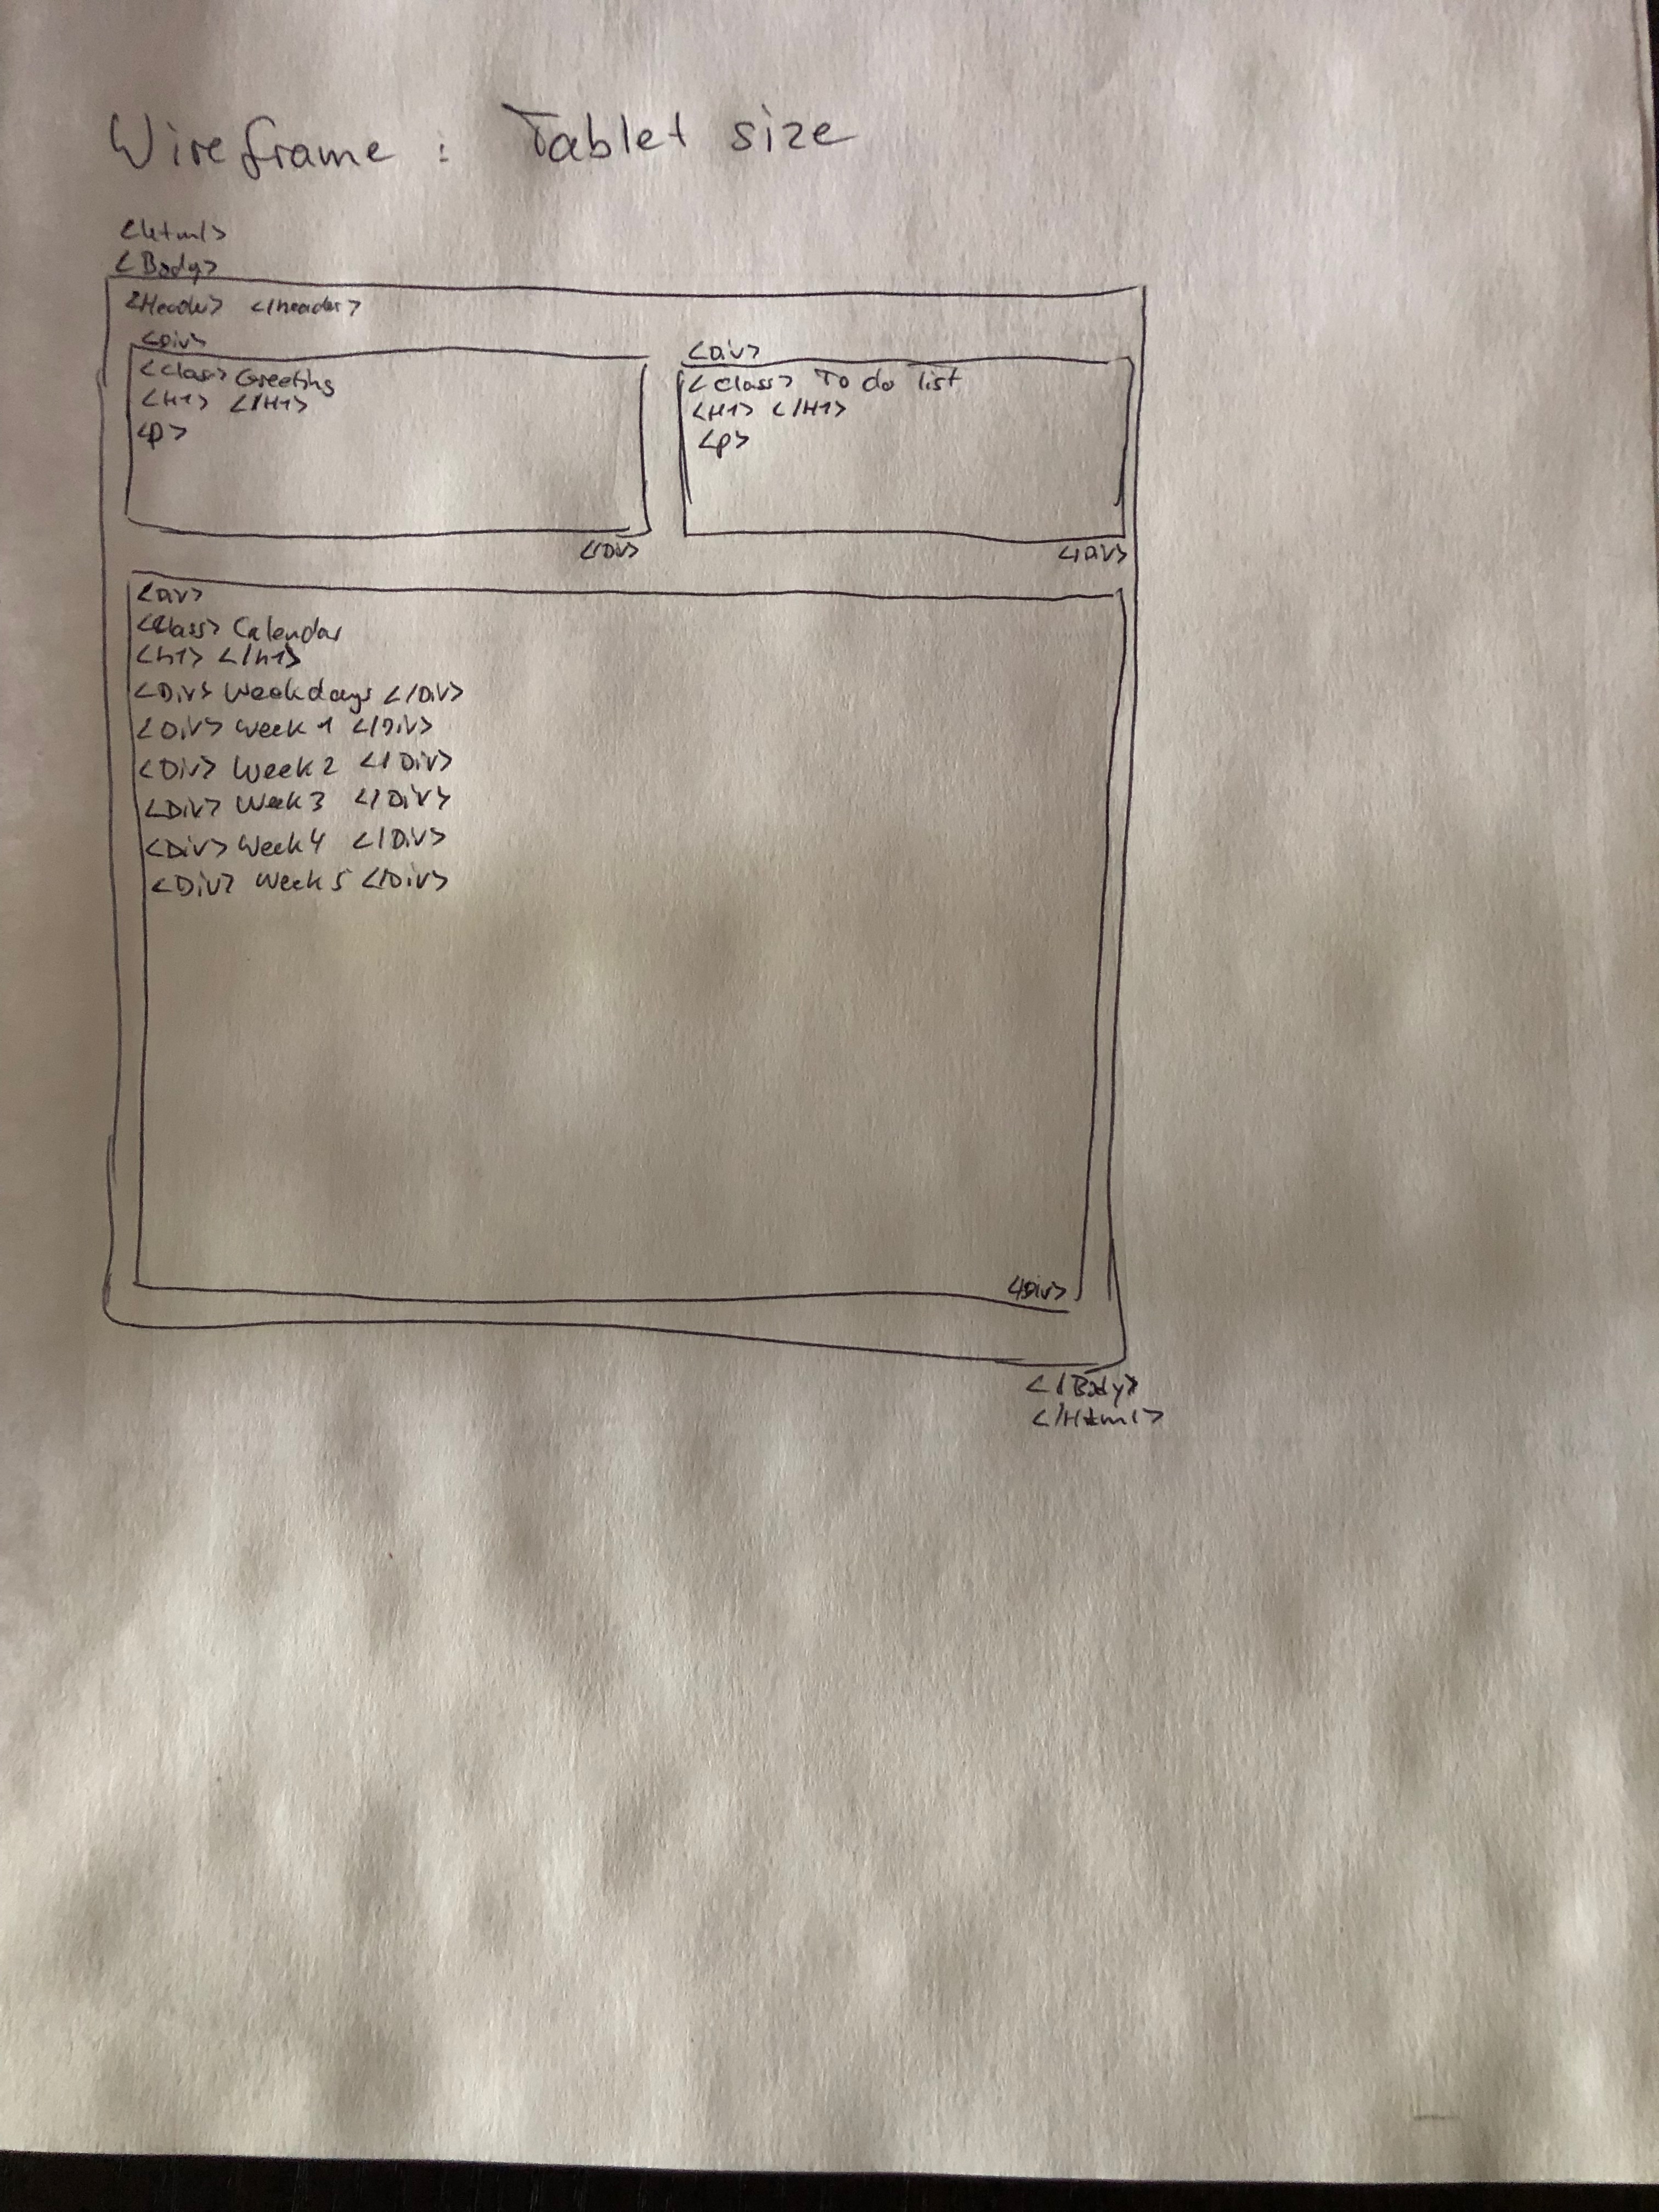 Wireframe : Tablet size
<Html>
<Body>
<Header> </header>
<Div>
<Class> Greeting
<H1> </H1>
<p>
</Div>
<div>
<class> To do list
<H1> </H1>
<p>
</Div>
<div>
<Class> Calendar
<h1> </h1>
<Div> Weekdays </Div>
<Div> Week 1 </Div>
<Div> Week 2 </Div>
<Div> Week 3 </Div>
<Div> Week 4 </Div>
<Div> Week 5 </Div>
</Div>
</Body>
</Html>